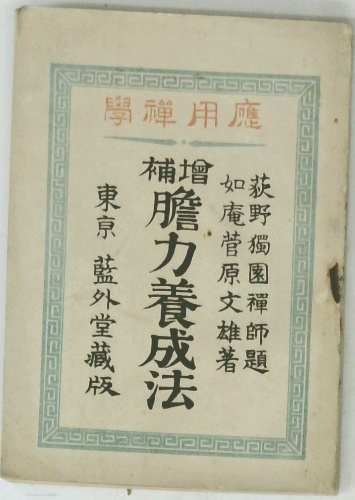 應用禪學
荻野獨園禪師題
如庵菅原文雄著
增補
膽力養成法
東京 藍外堂藏版